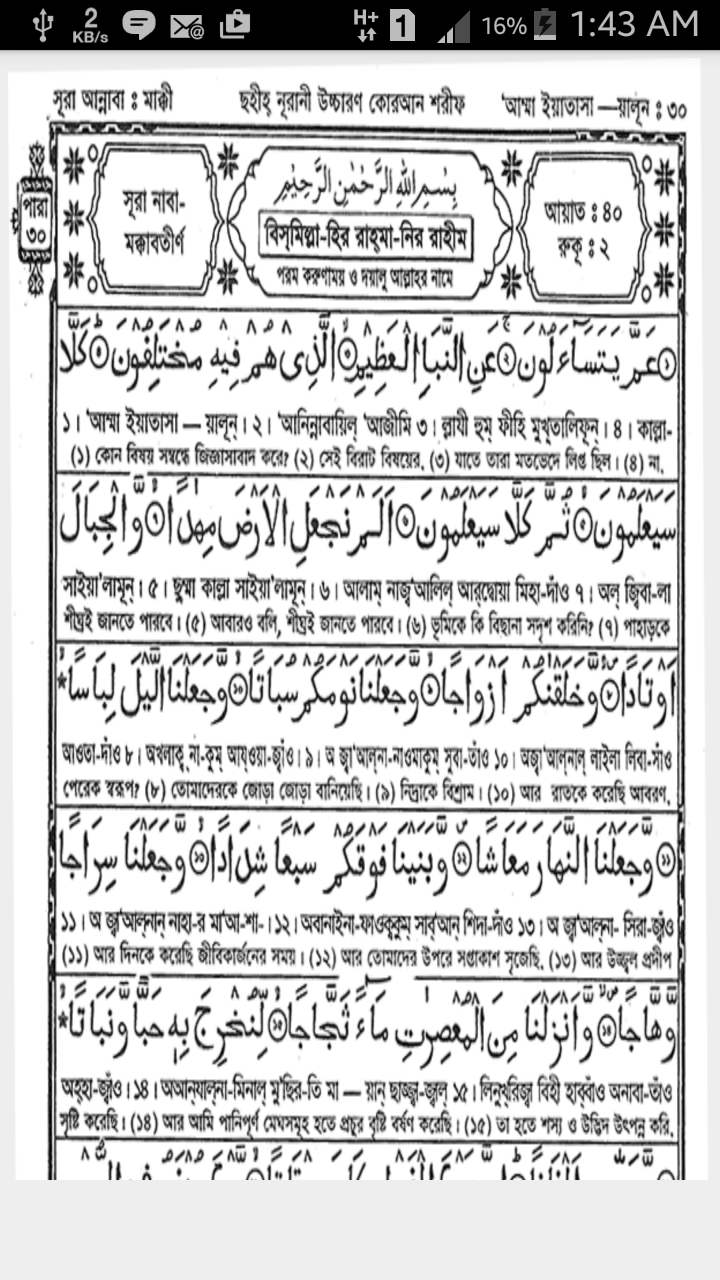 2
KB/s
H+
1
16%
1:43 AM
সূরা আন্নাবা : মাক্কী ছহীহ্ নূরানী উচ্চারণ কোরআন শরীফ 'আম্মা ইয়াতাসা —য়ালূন : ৩০
পারা
৩০
সূরা নাবা-
মক্কাবতীর্ণ
بِسْمِ اللهِ الرَّحْمٰنِ الرَّحِيْمِ
বিস্‌মিল্লা-হির রাহ্‌মা-নির রাহীম
পরম করুণাময় ও দয়ালু আল্লাহর নামে
আয়াত : ৪০
রুকূ : ২
① عَمَّ يَتَسَآءَلُوْنَ ② عَنِ النَّبَاِ الْعَظِيْمِ ③ الَّذِىْ هُمْ فِيْهِ مُخْتَلِفُوْنَ ④ كَلَّا
১। 'আম্মা ইয়াতাসা — য়ালূন। ২। 'আনিন্নাবায়িল্ 'আজীমি ৩। ল্লাযী হুম্ ফীহি মুখ্‌তালিফূন্। ৪। কাল্লা-
(১) কোন বিষয় সম্বন্ধে জিজ্ঞাসাবাদ করে? (২) সেই বিরাট বিষয়ের, (৩) যাতে তারা মতভেদে লিপ্ত ছিল। (৪) না,
سَيَعْلَمُوْنَ ⑤ ثُمَّ كَلَّا سَيَعْلَمُوْنَ ⑥ اَلَمْ نَجْعَلِ الْاَرْضَ مِهٰدًا ⑦ وَّالْجِبَالَ
সাইয়া'লামূন্। ৫। ছুম্মা কাল্লা সাইয়া'লামূন্। ৬। আলাম্ নাজ্'আলিল্ আর্‌দ্বোয়া মিহা-দাঁও ৭। অল্ জ্বিবা-লা
শীঘ্রই জানতে পারবে। (৫) আবারও বলি, শীঘ্রই জানতে পারবে। (৬) ভূমিকে কি বিছানা সদৃশ করিনি? (৭) পাহাড়কে
اَوْتَادًا ⑧ وَّخَلَقْنٰكُمْ اَزْوَاجًا ⑨ وَّجَعَلْنَا نَوْمَكُمْ سُبَاتًا ⑩ وَّجَعَلْنَا الَّيْلَ لِبَاسًا
আওতা-দাঁও ৮। অখলাক্ব্ না-কুম্ আয্ওয়া-জ্বাঁও। ৯। অ জ্বা'আল্‌না-নাওমাকুম্ সুবা-তাঁও ১০। অজ্বা'আল্‌নাল্ লাইলা লিবা-সাঁও
পেরেক স্বরূপ? (৮) তোমাদেরকে জোড়া জোড়া বানিয়েছি। (৯) নিদ্রাকে বিশ্রাম। (১০) আর রাতকে করেছি আবরণ,
⑪ وَّجَعَلْنَا النَّهَارَ مَعَاشًا ⑫ وَّبَنَيْنَا فَوْقَكُمْ سَبْعًا شِدَادًا ⑬ وَّجَعَلْنَا سِرَاجًا
১১। অ জ্বা'আল্‌নান্ নাহা-র মা'আ-শা-। ১২। অবানাইনা-ফাওক্বকুম্ সাব্'আন্ শিদা-দাঁও ১৩। অ জ্বা'আল্‌না- সিরা-জ্বাঁও
(১১) আর দিনকে করেছি জীবিকার্জনের সময়। (১২) আর তোমাদের উপরে সপ্তাকাশ সৃজেছি, (১৩) আর উজ্জ্বল প্রদীপ
وَّهَّاجًا ⑭ وَّاَنْزَلْنَا مِنَ الْمُعْصِرٰتِ مَآءً ثَجَّاجًا ⑮ لِّنُخْرِجَ بِهٖ حَبًّا وَّنَبَاتًا
অহ্‌হা-জ্বাঁও। ১৪। অআন্‌যাল্‌না-মিনাল্ মু'ছির-তি মা — য়ান্ ছাজ্জা-জ্বাল্ ১৫। লিনুখ্‌রিজা বিহী হাব্বাঁও অনাবা-তাঁও
সৃষ্টি করেছি। (১৪) আর আমি পানিপূর্ণ মেঘসমূহ হতে প্রচুর বৃষ্টি বর্ষণ করেছি। (১৫) তা হতে শস্য ও উদ্ভিদ উৎপন্ন করি,